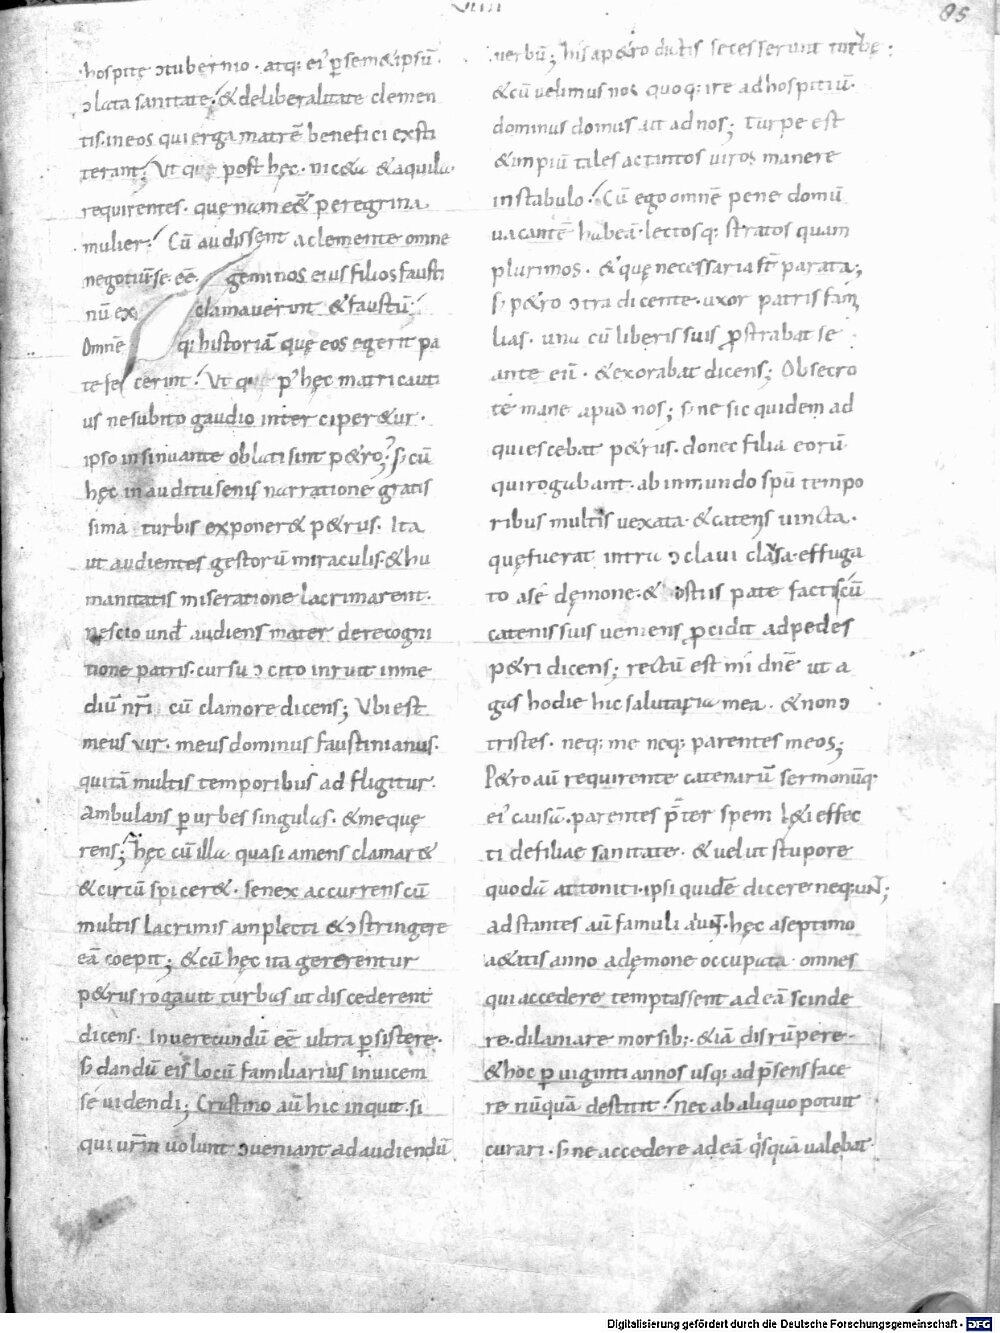 VIIII
85
hospite ɔtubernio. atq; ei' p semetipsū.
ɔlata sanitate; & deliberalitate clemen
tis. in eos qui erga matrē benefici exsti
terant; Ut que post hęc. nicea & aquila
requirentes. quę nam eēt peregrina
mulier; Cū audissent a clemente omne
negotiū se eē. gemi nos eius filios fausti
nū ex clamaverunt & faustū;
Omnē q; historiā quę eos egerit pa
te fe cerint; Ut que p' hęc matri cauti
us ne subito gaudio inter ciper&ur.
ipso insinuante oblati sint p&ro; s; cū
hęc in auditu senis narratione gratis
sima turbis exponer& p&rus. Ita
ut audientes gestorū miraculis. & hu
manitatis miseratione lacrimarent.
nescio und' audiens mater de recogni
tione patris. cursu ɔcito inruit in me
diū nr̄i cū clamore dicens; Ubi est
meus vir. meus dominus faustinianus.
qui tā multis temporibus adfligitur.
Ambulans p urbes singulas. & me quę
rens; hęc cū illa quasi amens clamar&
& circū spicer&. senex accurrens cū
multis lacrimis amplecti & ɔstringere
eā coepit; & cū hęc ita gererentur
p&rus rogavit turbas ut discederent
dicens. Inverecundū eē ultra p sistere.
s; dandū eis locū familiarius invicem
se videndi; Crastino aū hic inquit. si
qui vr̄m volunt ɔveniant ad audiendū
verbū; his a p&ro dictis secesserunt turbę;
& cū velimus nos quoq; ire ad hospitiū.
dominus domus ait ad nos; Turpe est
& inpiū tales ac tantos viros manere
in stabulo; Cū ego omnē pene domū
vacantē habeā. lectosq; stratos quam
plurimos. & quę necessaria st̄ parata;
s; p&ro ɔtra dicente. uxor patris fam
lias. una cū liberis suis p strabat se
ante eū. & exorabat dicens; Obsecro
te mane apud nos; s; ne sic quidem ad
quiescebat p&rus. donec filia eorū
qui rogabant. ab inmundo spū tempo
ribus multis vexata. & catenis vincta.
quę fuerat intra ɔclavi clausa. effuga
to a se demone. & ostiis pate factis cū
catenis suis veniens p cidit ad pedes
p&ri dicens; rectū est mi dn̄e ut a
gas hodie hic salutaria mea. & non ɔ
tristes. neq; me neq; parentes meos;
P&ro aū requirente catenarū sermonūq;
ei' causā. parentes p̄ter spem l&i effec
ti de filiae sanitate. & velut stupore
quodā attoniti. ipsi quidē dicere nequnt;
adstantes aū famuli aiunt. hęc a septimo
a&atis anno a dęmone occupata omnes
qui accedere temptassent ad eā scinde
re. dilaniare morsib;. & iā disrūpere.
& hoc p viginti annos usq; ad p̄sens face
re nūquā destitit; Nec ab aliquo potuit
curari. s; ne accedere ad eā q'squā valebat
Digitalisierung gefördert durch die Deutsche Forschungsgemeinschaft - DFG